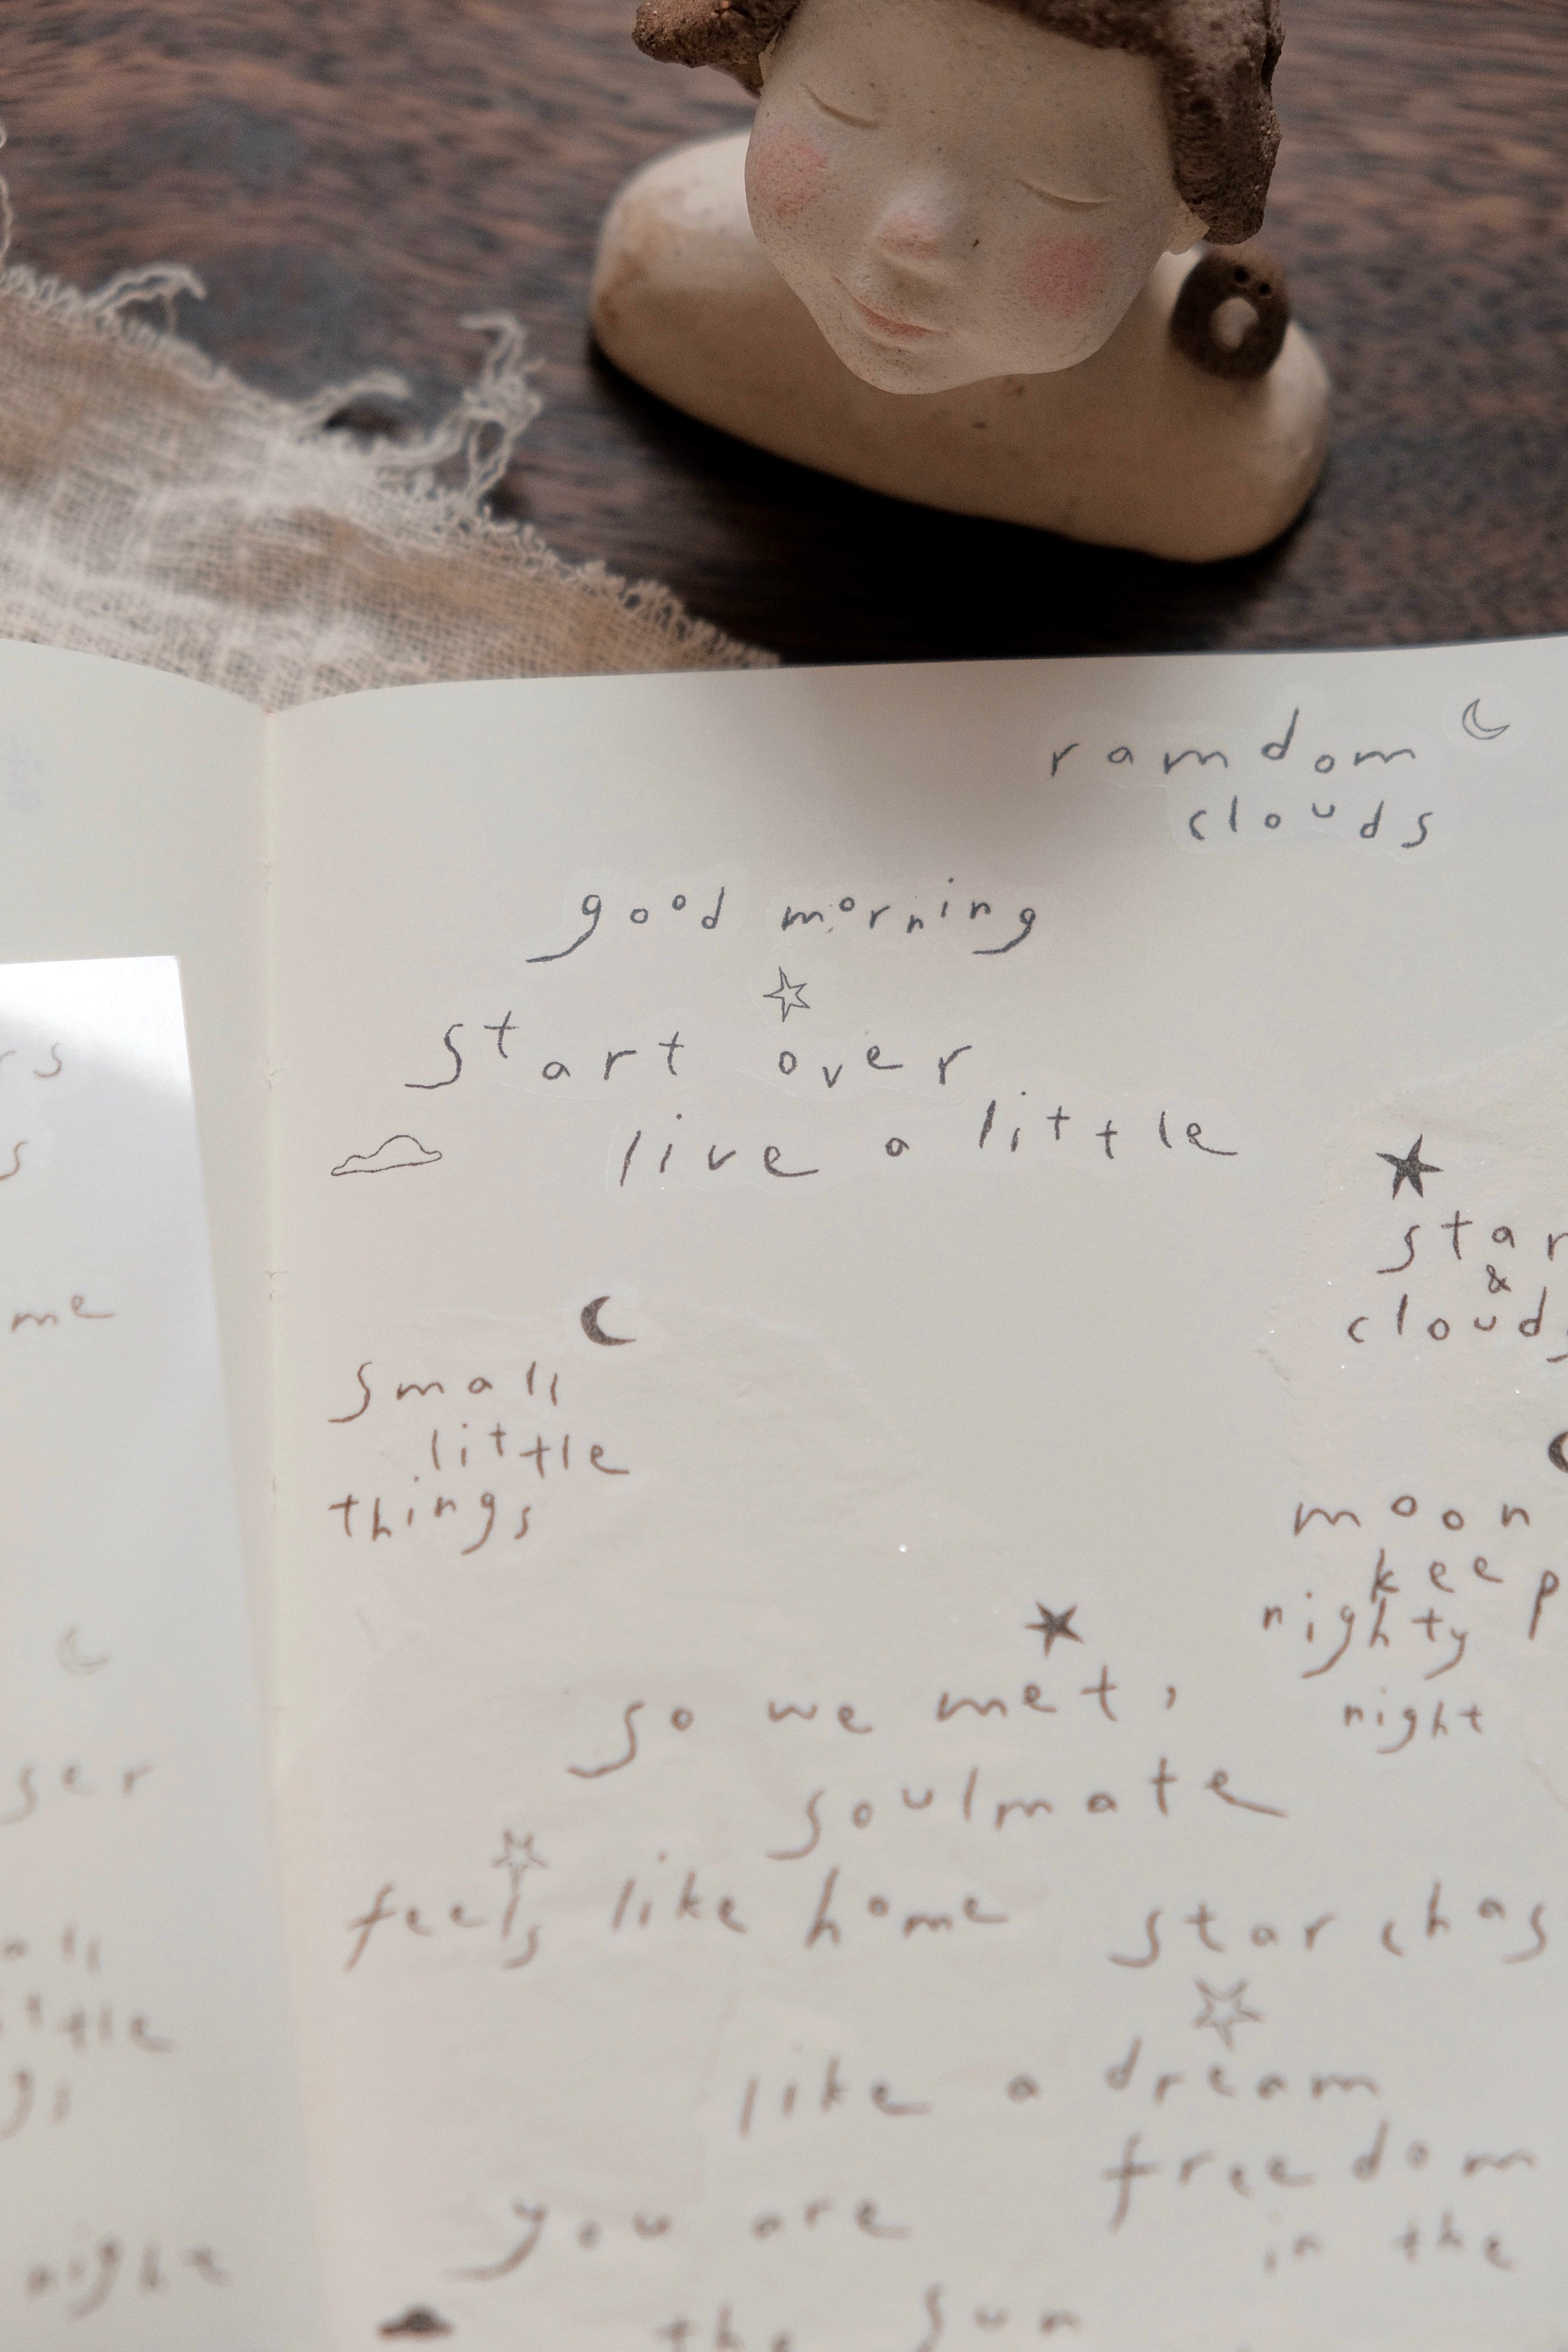 ramdom
clouds
good morning
start over
live a little
star
&
clouds
small
little
things
moon
keep
nighty
night
so we met,
soulmate
feels like home
star chas
like a dream
freedom
in the
you are
the sun
rs
s
me
ser
all
ittle
gs
night